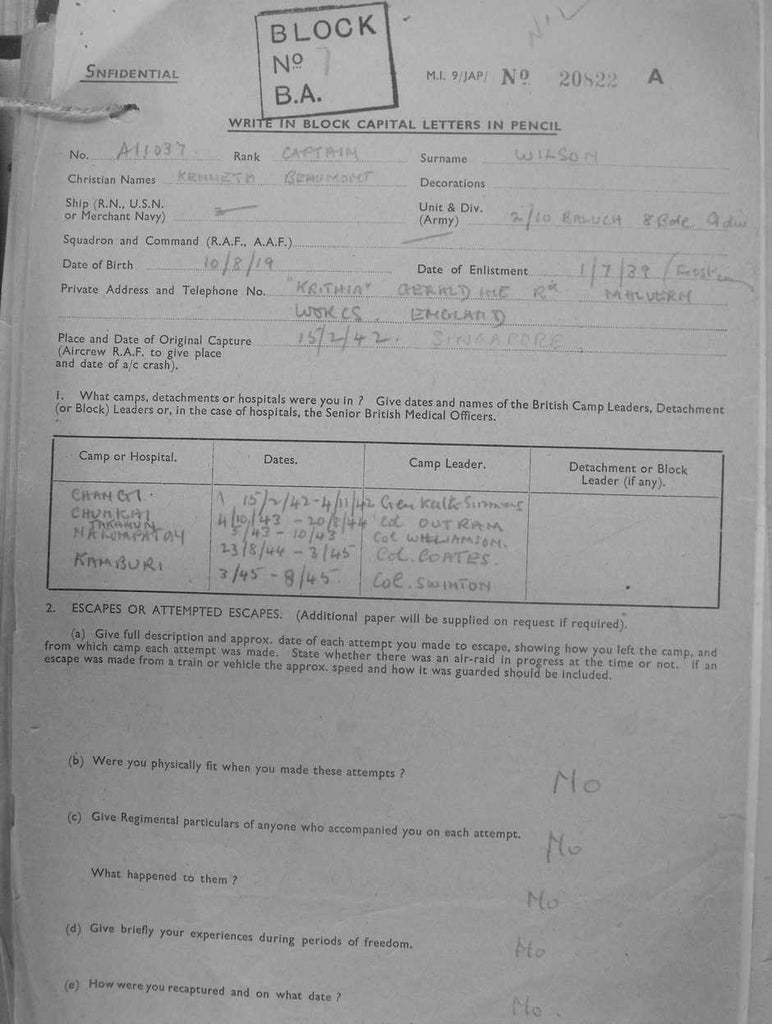 BLOCK
Nº 7
B.A.
SNFIDENTIAL
M.I. 9/JAP/ Nº 20822 A
WRITE IN BLOCK CAPITAL LETTERS IN PENCIL
No. A11037 Rank CAPTAIN Surname WILSON
Christian Names KENNETH BEAUMONT Decorations
Ship (R.N., U.S.N.
or Merchant Navy)
Unit & Div.
(Army) 2/10 BALUCH 8 Bde 9 div
Squadron and Command (R.A.F., A.A.F.)
Date of Birth 10/8/19 Date of Enlistment 1/7/39
Private Address and Telephone No. "KRITHIA" GERALDINE Rd MALVERN
WORCS, ENGLAND
Place and Date of Original Capture 15/2/42. SINGAPORE
(Aircrew R.A.F. to give place
and date of a/c crash).
1. What camps, detachments or hospitals were you in ? Give dates and names of the British Camp Leaders, Detachment
(or Block) Leaders or, in the case of hospitals, the Senior British Medical Officers.
Camp or Hospital. Dates. Camp Leader. Detachment or Block
Leader (if any).
CHANGI. 15/2/42-4/11/42 Gen Keith Simmons
CHUNKAI 4/10/43 - 20/8/44 Col OUTRAM
TAKANUN 5/43 - 10/43 Col WILLIAMSON.
23/8/44 - 3/45 Col. COATES.
KAMBURI 3/45 - 8/45 Col. SWINTON
2. ESCAPES OR ATTEMPTED ESCAPES. (Additional paper will be supplied on request if required).
(a) Give full description and approx. date of each attempt you made to escape, showing how you left the camp, and
from which camp each attempt was made. State whether there was an air-raid in progress at the time or not. If an
escape was made from a train or vehicle the approx. speed and how it was guarded should be included.
(b) Were you physically fit when you made these attempts ?
No
(c) Give Regimental particulars of anyone who accompanied you on each attempt.
No
What happened to them ?
No
(d) Give briefly your experiences during periods of freedom.
No
(e) How were you recaptured and on what date ?
No.